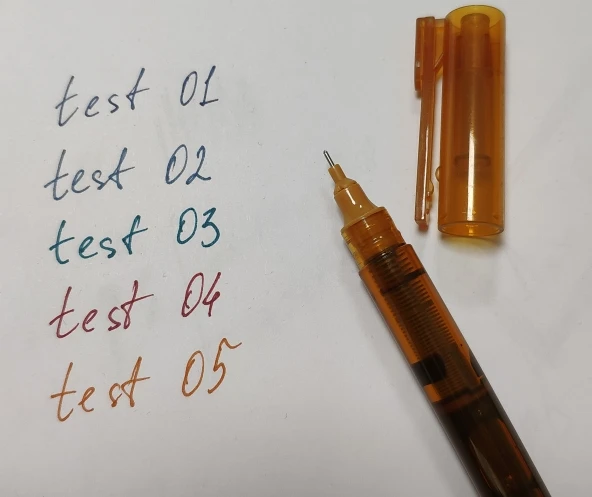 test 01
test 02
test 03
test 04
test 05